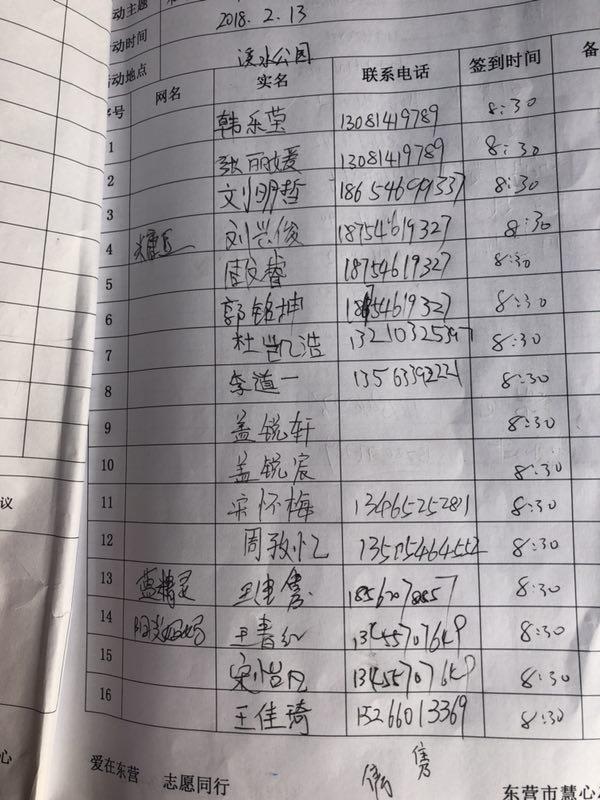 动主题
动时间 2018.2.13
动地点 溪水公园
序号 网名 实名 联系电话 签到时间 备
1 韩乐莹 13081419789 8:30
2 张丽媛 13081419789 8:30
3 刘明哲 18654699337 8:30
4 刘兴俊 18754619327 8:30
5 文睿 18754619327 8:30
6 郭铭坤 18754619327 8:30
7 杜凯浩 8:30
8 李道一 8:30
9 盖锐轩 8:30
10 盖锐宸 8:30
11 宋怀梅 13465252811 8:30
12 周致忆 13505464552 8:30
13 蓝精灵 王佳隽 8:30
14 王春红 13455707649 8:30
15 宋怡凡 13455707649 8:30
16 王佳琦 15266013369 8:30
隽
爱在东营 志愿同行 东营市慧心
议
心